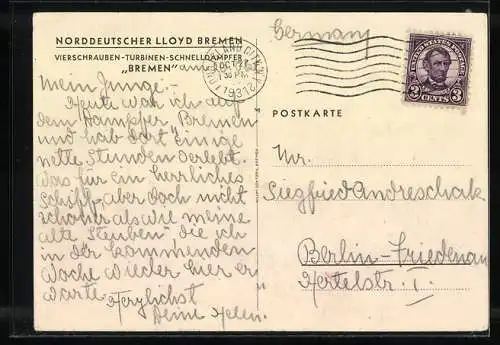 NORDDEUTSCHER LLOYD BREMEN
VIERSCHRAUBEN-TURBINEN-SCHNELLDAMPFER
„BREMEN" am
Mein Junge.-
Heute war ich auf
dem Dampfer Bremen
und hab dort einige
nette Stunden verlebt.
Was für ein herrliches
Schiff, aber doch nicht
schöner als wie meine
alte Steuben die ich
in der kommenden
Woche wieder hier er
warte. Herzlichst
Deine Helen.
Germany
OCT
PM
1931
UNITED STATES POSTAGE
LINCOLN
3 CENTS 3
POSTKARTE
Mr.
Siegfried Andreschak
Berlin-Friedenau
Hertelstr. I.